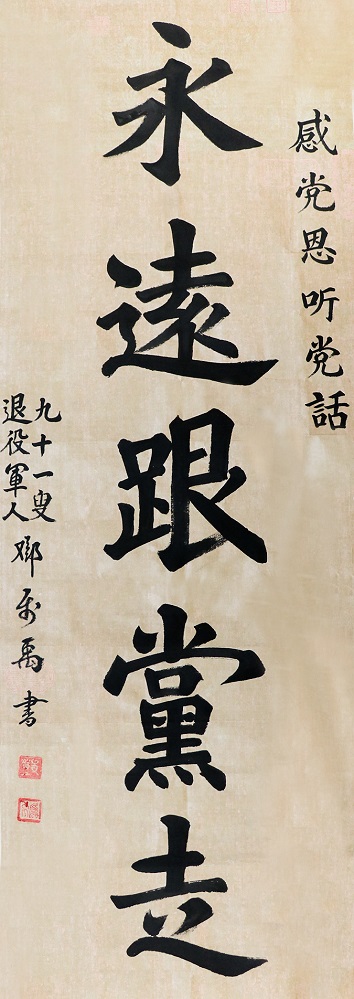 感党恩听党話
永遠跟黨走
九十一叟
退役軍人
禹書